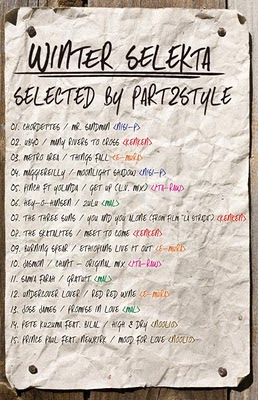 WINTER SELEKTA
SELECTED BY PART2STYLE
01. CHORDETTES / MR. SANDMAN <NISI-P>
02. UB40 / MANY RIVERS TO CROSS <KENKEN>
03. METRO AREA / THINGS FALL <E-MURA>
04. MAGGIEREILLY / MOONLIGHT SHADOW <NISI-P>
05. FINCH FT YOLANDA / GET UP (L.V. MIX) <MTA-RAW>
06. HEY-O-HANSEN / ZULU <MAL>
07. THE THREE SUNS / YOU AND YOU ALONE (FROM FILM "LA STRADA") <KENKEN>
08. THE SKATALITES / MEET TO COME <KENKEN>
09. BURNING SPEAR / ETHIOPIANS LIVE IT OUT <E-MURA>
10. JASMON / CHANT - ORIGINAL MIX <MTA-RAW>
11. SAMIA FARAH / GRATUIT <MAL>
12. UNDERCOVER LOVER / RED RED WINE <E-MURA>
13. JOSE JAMES / PROMISE IN LOVE <MAL>
14. PETE KUZMA FEAT. BILAL / HIGH & DRY <NOOLIO>
15. PRINCE PAUL FEAT. NEWKIRK / MOOD FOR LOVE <NOOLIO>